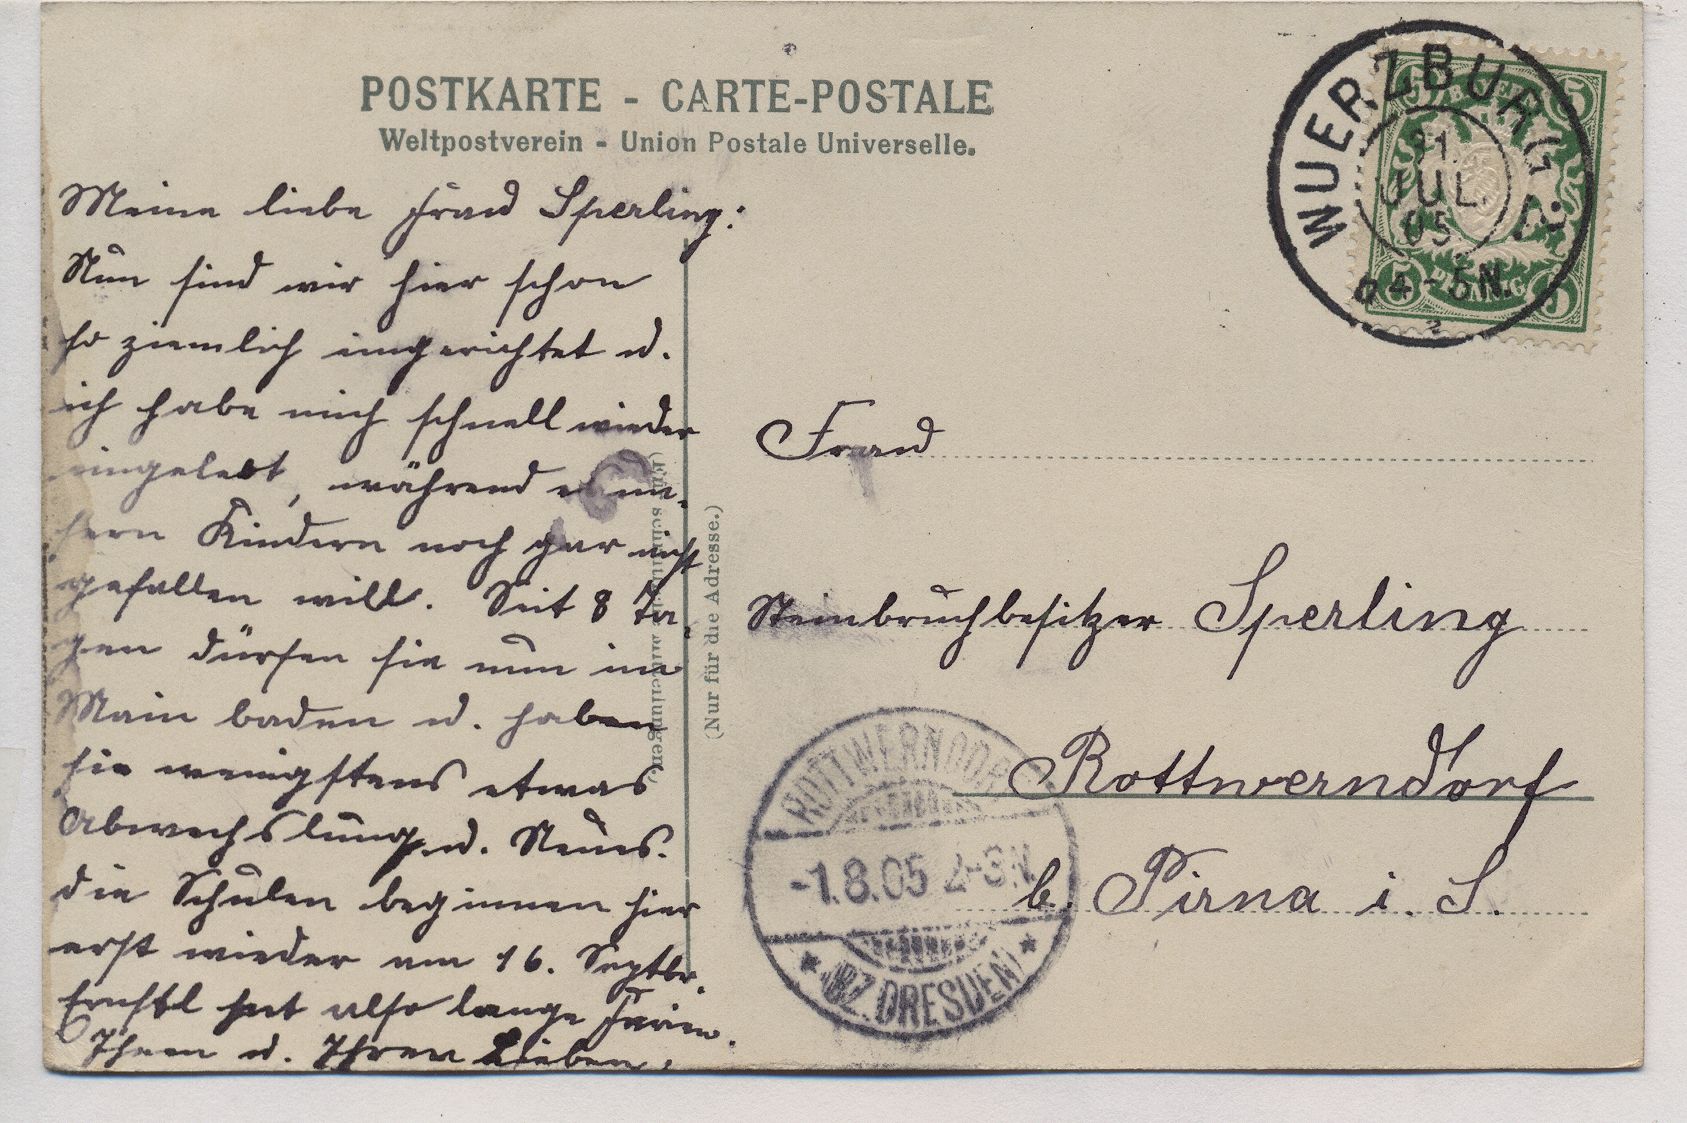 POSTKARTE - CARTE-POSTALE
Weltpostverein - Union Postale Universelle.
WUERZBURG 2.
31.
JUL.
05
4-5N.
BAYERN
5 5
5 PFENNIG 5
Meine liebe Frau Sperling:
Nun sind wir hier schon
so ziemlich eingerichtet u.
ich habe mich schnell wieder
eingelebt, während es un-
sern Kindern noch gar nicht
gefallen will. Seit 8 Ta-
gen dürfen sie nun im
Main baden u. haben
sie wenigstens etwas
Abwechslung u. Neues.
die Schulen beginnen hier
erst wieder am 16. Septbr.
Ernstl hat also lange Ferien.
Ihnen u. Ihren Lieben,
(Für schriftliche Mitteilungen.)
(Nur für die Adresse.)
Frau
Steinbruchbesitzer Sperling
Rottwerndorf
b. Pirna i. S.
ROTTWERNDORF
-1.8.05 2-3N.
* (BZ. DRESDEN) *